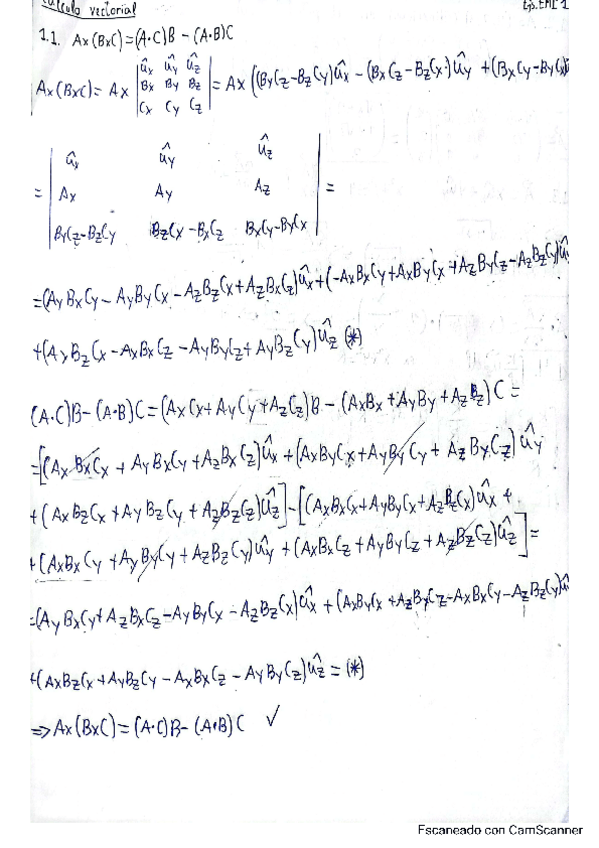 Cálculo vectorial
Ej. EMC 1
1.1. Ax(BxC)=(A·C)B - (A·B)C
Ax(BxC)= Ax | ûx ûy ûz | = Ax((ByCz-BzCy)ûx - (BxCz-BzCx)ûy + (BxCy-ByCx)
Bx By Bz
Cx Cy Cz
ûx ûy ûz
= | Ax Ay Az | =
ByCz-BzCy BzCx-BxCz BxCy-ByCx
=(AyBxCy - AyByCx - AzBzCx + AzBxCz)ûx + (-AxBxCy + AxByCx + AzByCz - AzBzCy)û
+(AxBzCx - AxBxCz - AyByCz + AyBzCy)ûz (*)
(A·C)B-(A·B)C = (AxCx + AyCy + AzCz)B - (AxBx + AyBy + AzBz)C =
=[(AxBxCx + AyBxCy + AzBxCz)ûx + (AxByCx + AyByCy + AzByCz)ûy
+(AxBzCx + AyBzCy + AzBzCz)ûz] - [(AxBxCx + AyByCx + AzBzCx)ûx +
+(AxBxCy + AyByCy + AzBzCy)ûy + (AxBxCz + AyByCz + AzBzCz)ûz] =
=(AyBxCy + AzBxCz - AyByCx - AzBzCx)ûx + (AxByCx + AzByCz - AxBxCy - AzBzCy)û
+(AxBzCx + AyBzCy - AxBxCz - AyByCz)ûz = (*)
=> Ax(BxC) = (A·C)B - (A·B)C ✓
Escaneado con CamScanner